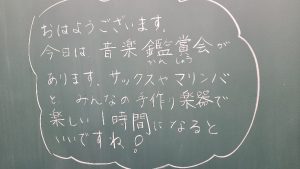 おはようございます。
今日は 音楽鑑賞会が
かんしょう
あります。サックスやマリンバ
と みんなの手作り楽器で
楽しい 1時間になると
いいですね!